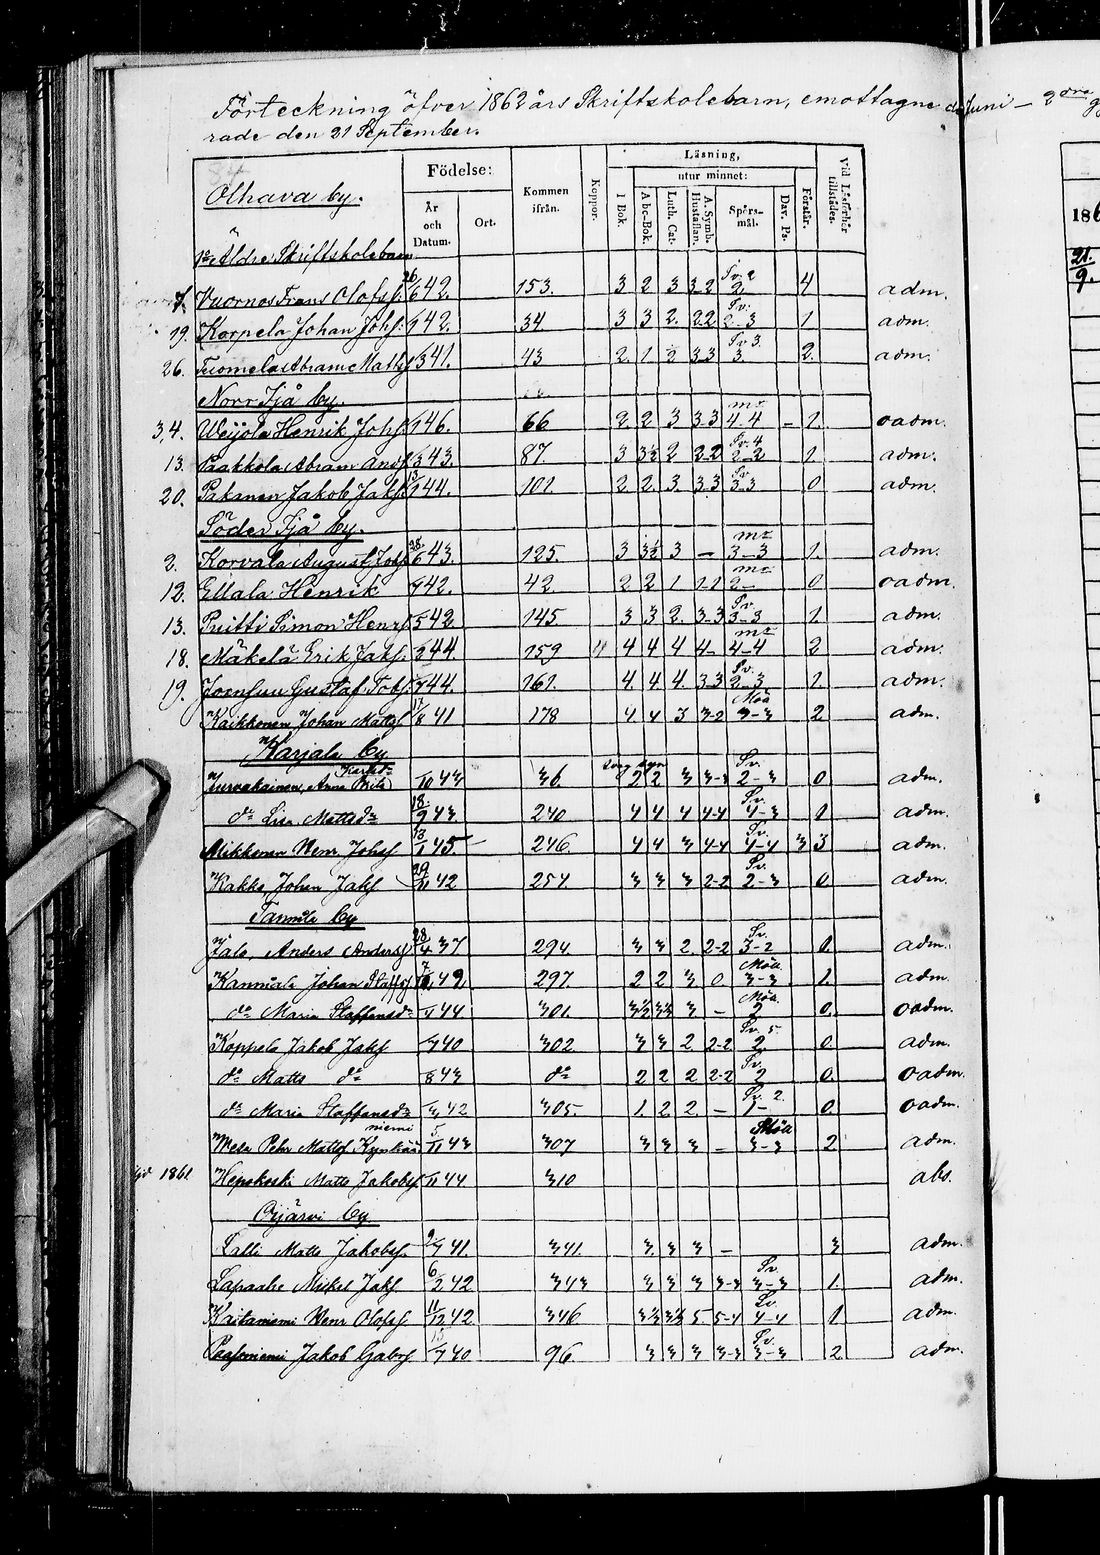 Förteckning öfver 1862 års Skriftskolebarn, emottagne d. Juni – 2dra
rade den 21 September.
Olhava by.
Födelse:
År och Datum.
Ort.
Kommen ifrån.
Koppor.
Läsning,
utur minnet:
I Bok.
Abc-Bok.
Luth. Cat.
A. Symb. Hustaflan.
Spörs-mål.
Dav. Ps.
Förstår.
Vid Läsförhör tillstädes.
1o Äldre Skriftskolebarn
7. Vuornos Frans Olofss. 26/6 42. 153. 3 2 3 3-2 Sv. 2 2. 4 adm.
19. Korpela Johan Johs. 42. 34 3 3 2. 2.2 Sv. 2-3 1 adm.
26. Tuomela Abram Matts 41. 43 2. 1 2 3-3 Sv 3. 3. 2. adm.
Norr Ijå by.
3,4. Weijola Henrik Johs 46. 66 2 2 3 3-3 4-4 – 1. oadm.
13. Paakkola Abram And. 43. 87 3 3½ 2 2-2 Sv. 4 2-2 1 adm.
20. Pakanen Jakob Jaks. 44. 101. 2 2. 3. 3-3 Sv 3-3 0 adm.
Söder Ijå by.
2. Korvala August Johs 28/6 43. 125. 3 3½ 3 – 3-3 1. adm.
12. Ellala Henrik 42. 42 2 2 1 1-1 2- 0 oadm.
13. Puitti Simon Henrs. 42 145. 3 3 2. 3-3 Sv. 3-3 1. adm.
18. Mäkelä Erik Jaks. 44. 159 4 4 4 4- 4-4 2 adm.
19. Joensuu Gustaf Tobs. 44. 161. 4. 4 4. 3-3 Sv. 2-3 1. adm.
Kaikkonen Johan Matts 11/8 41 178 4 4 3 3-2 Möll 3-3 2 adm.
Karjala by
Turvakainen, Anna Brita Karlsd. 10 43 36. 2 2 3 3-3 Sv. 2-3 0 adm.
do Lisa Mattsdr 18/9 43 240 4 4 4 4-4 Sv. 4-3 1 adm.
Mikkonen Henr Johss 13/1 45. 246. 4 4 3 4-4 Sv. 4-4 3 3 adm.
Kakko, Johan Jaks 29/11 42 254. 3 3 3 2-2 Sv. 2-3 0 adm.
Tannila by
Jalo, Anders Anderss 28/4 37 294. 3 3 2. 2-2 Sv. 3-2 0. adm.
Kanniala Johan Staffss 42. 297. 2 2 3 0 Möll. 3-3 1. adm.
do Maria Staffansdr 44 301. 3½ 3½ 3 – Möll. 2 0. oadm.
Koppelo Jakob Jaks 40 302 3 3 2 2-2 Sv. 5 2. 0. adm.
do Matts do 8 43 do 2 2 2 2-2 Sv. 2 0. oadm.
do Maria Staffansdr 42 305. 1. 2 2 – Sv. 2. 1- 0. oadm.
Mela Pehr Mattss Kynkäänniemi 5/11 43 307 3 3 3 – Möll 3-3 2 adm.
1861 Hepokoski Matts Jakobss 11 44 310 abs.
Oijärvi by.
Lalli Matts Jakobss. 9/ 41. 341. 3 3 3 – 3 adm.
Lapaaho Mickel Jaks 6/2 42 343 3 3 3 3-3 Sv 3-3 1. adm.
Kaitaniemi Henr Olofss 11/12 42 346 3½ 3½ 5 5-4 Sv. 4-4 1 adm.
Paasoniemi Jakob Gabrs 40 96. 3 3 3 3-3 Sv. 3-3 2. adm.
186
21.
9.